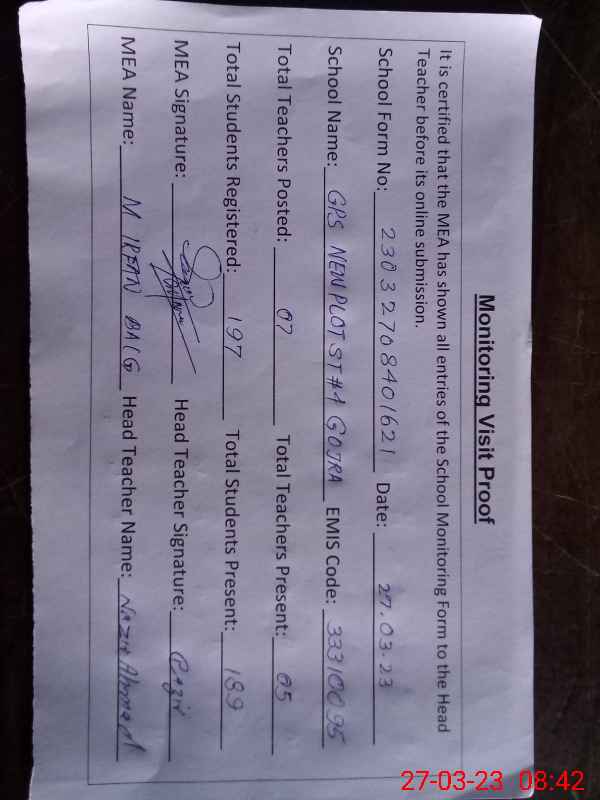 Monitoring Visit Proof
It is certified that the MEA has shown all entries of the School Monitoring Form to the Head
Teacher before its online submission.
School Form No: 23032708401621 Date: 27.03.23
School Name: GPS NEW PLOT ST#1 GOJRA EMIS Code: 33310095
Total Teachers Posted: 07 Total Teachers Present: 05
Total Students Registered: 197 Total Students Present: 189
MEA Signature: Head Teacher Signature:
MEA Name: M IRFAN BAIG Head Teacher Name: Nazir Ahmed
27-03-23 08:42